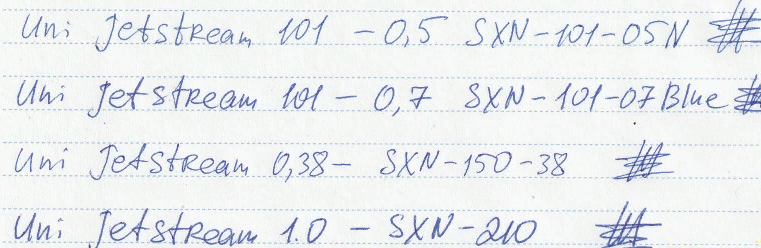 Uni Jetstream 101 - 0,5 SXN-101-05N
Uni Jetstream 101 - 0,7 SXN-101-07 Blue
Uni Jetstream 0,38 - SXN-150-38
Uni Jetstream 1.0 - SXN-210